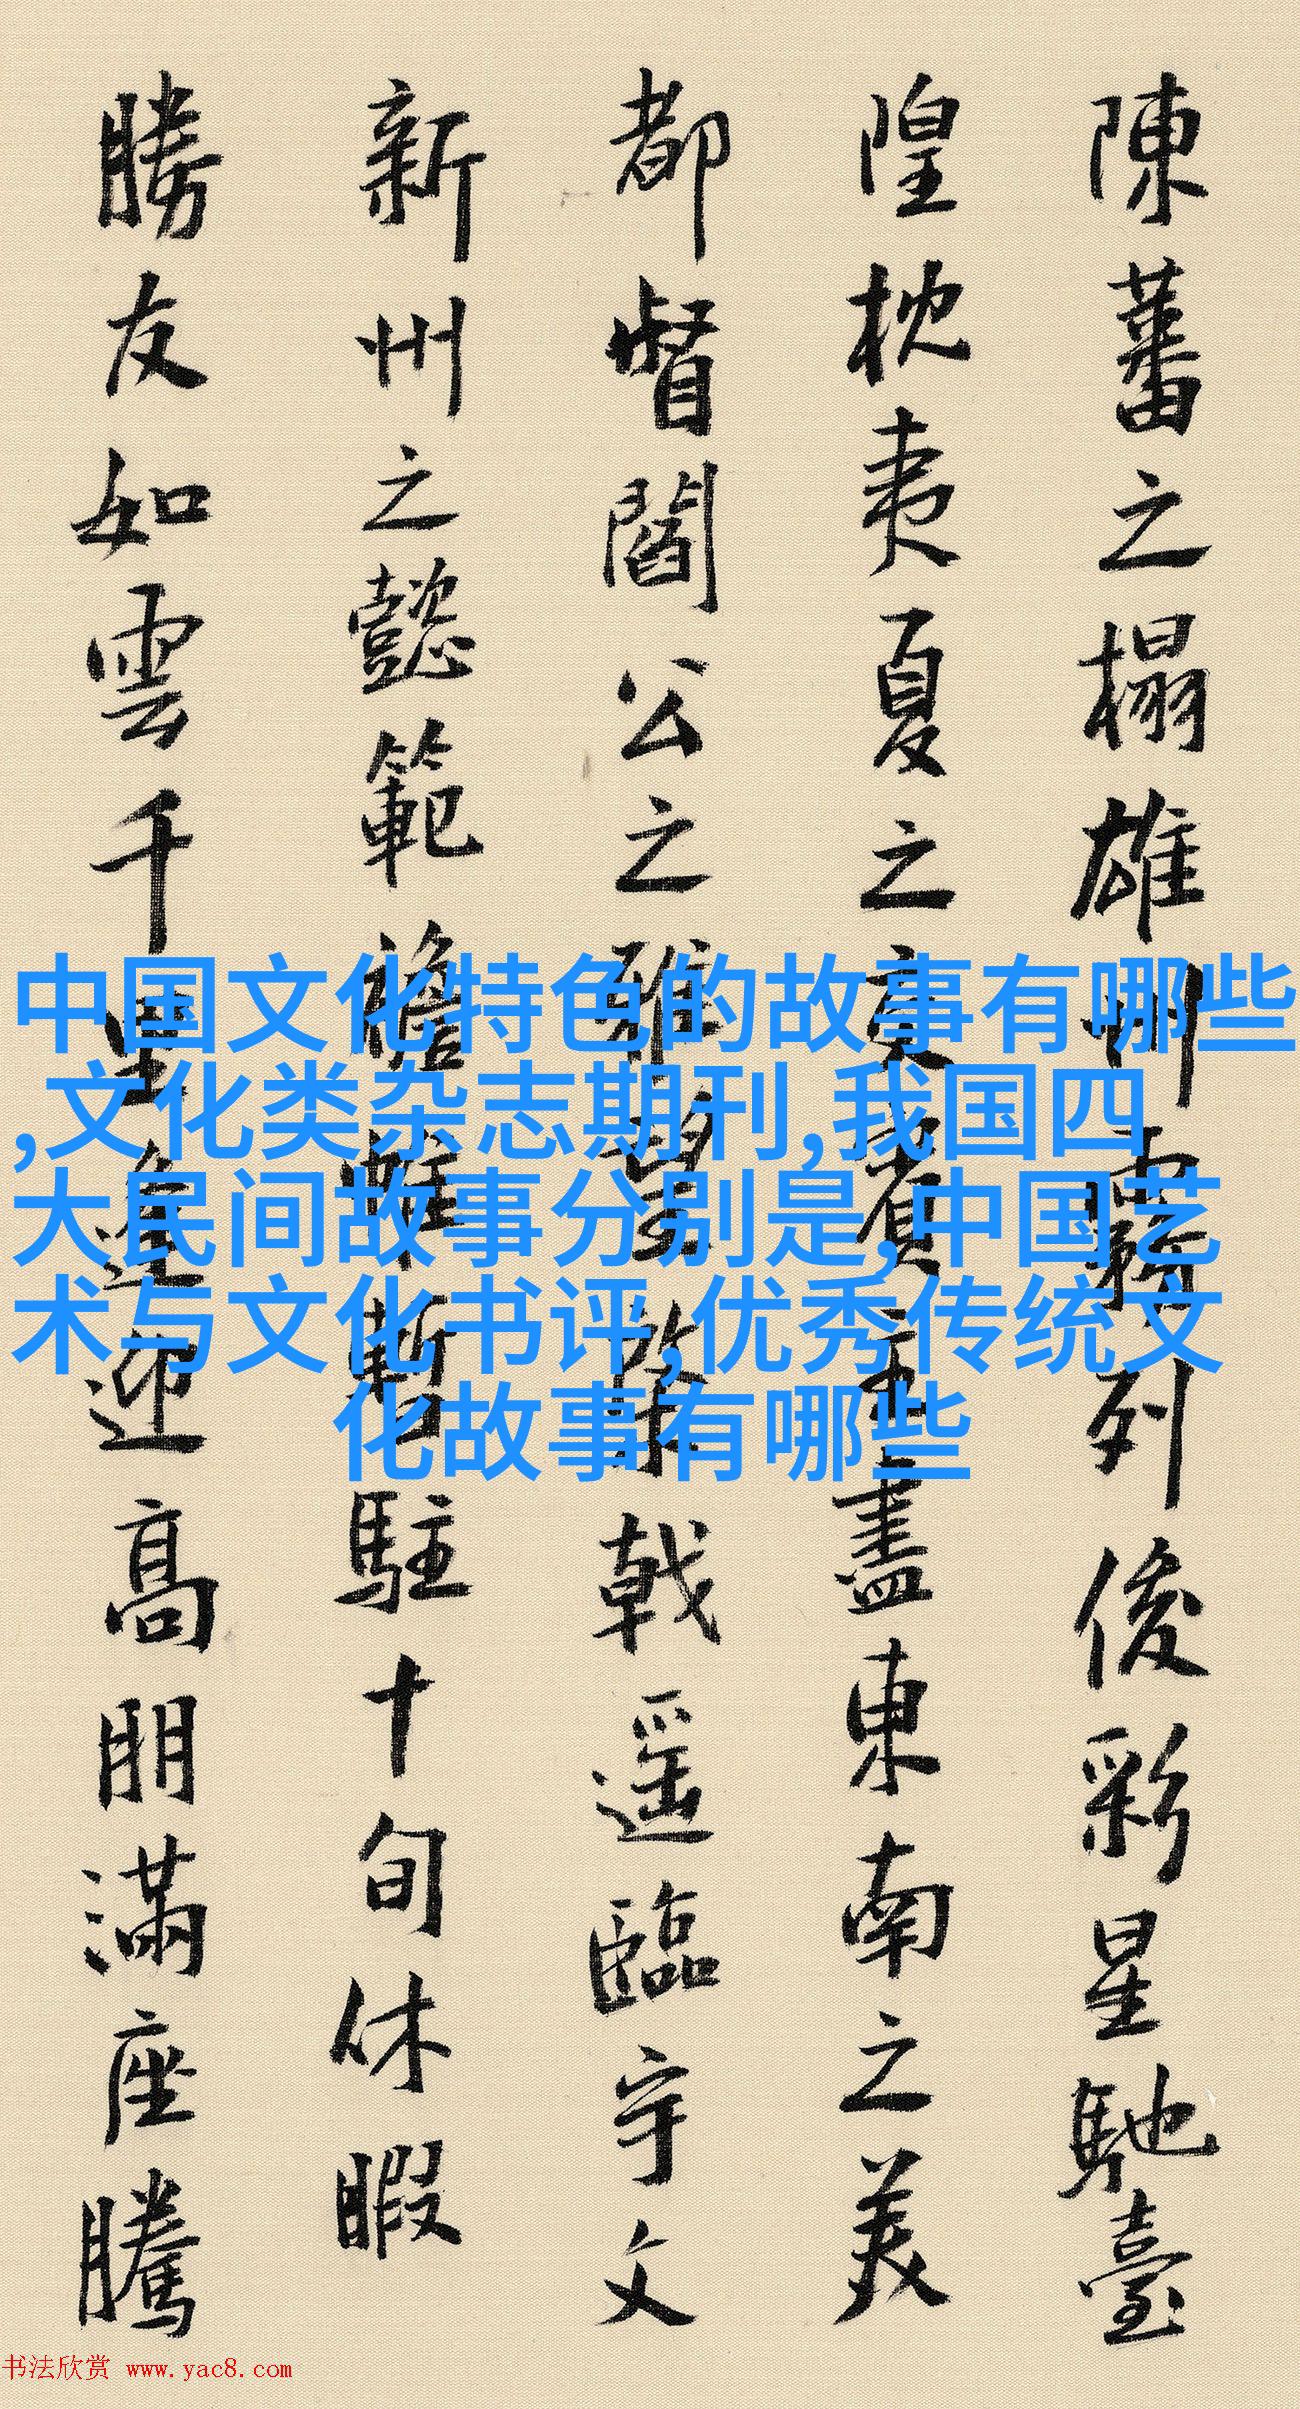 陳蕃之榻雄州霧列俊彩星馳臺
隍枕夷夏之交賓主盡東南之美
都督閻公之雅望棨戟遥臨宇文
新州之懿範襜帷暫駐十旬休暇
勝友如雲千里逢迎高朋滿座騰
中国文化特色的故事有哪些
,文化类杂志期刊,我国四
大民间故事分别是,中国艺
术与文化书评,优秀传统文
化故事有哪些
书法欣赏 www.yac8.com